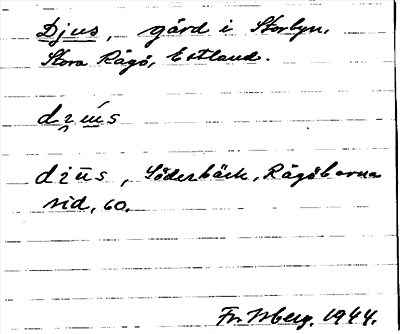 Djus, gård i Storbyn,
Stora Rågö, Estland.
dzús
dzūs, Söderbäck, Rågöborna
sid. 60.